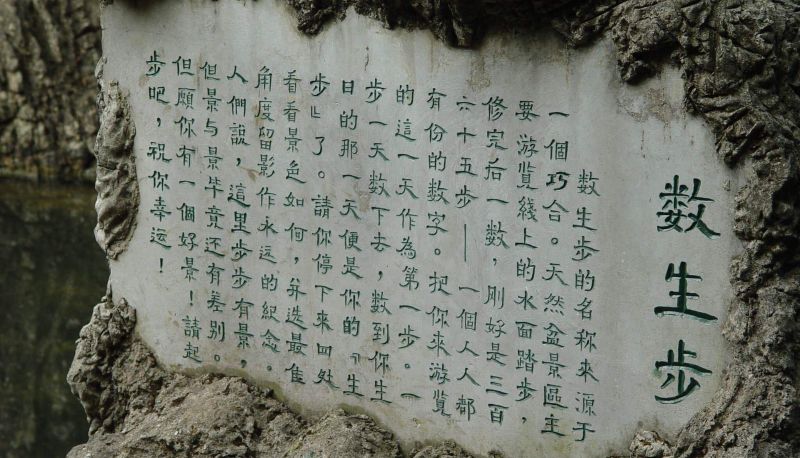 数生步
数生步的名称来源于
一個巧合。天然盆景區主
要游览綫上的水面踏步，
修完后一数，刚好是三百
六十五步——一個人人都
有份的数字。把你来游览
的這一天作為第一步。一
步一天数下去，数到你生
日的那一天便是你的『生
步』了。請你停下来四处
看看景色如何，弁选最佳
角度留影作永远的紀念。
人們說，這里步步有景，
但景与景毕竟还有差别。
但願你有一個好景！請起
步吧，祝你幸运！